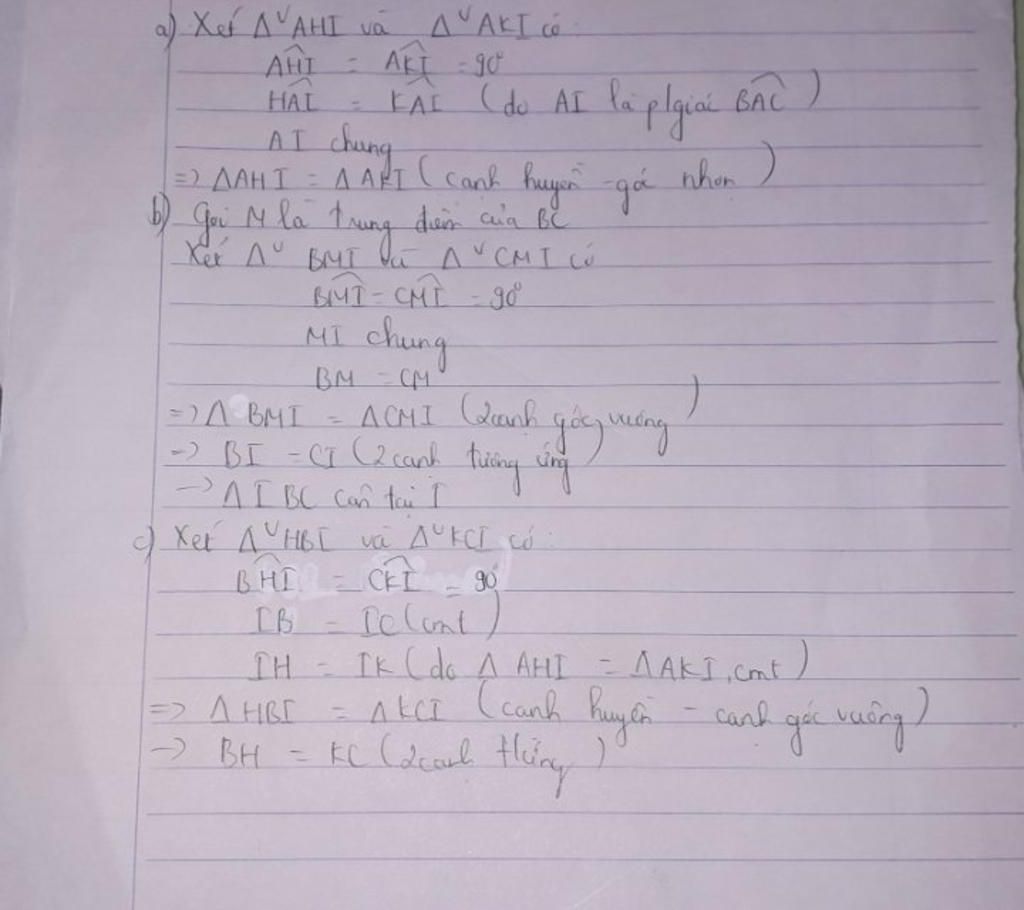 a) Xét Δᵛ AHI và Δᵛ AKI có
AHI = AKI = 90°
HAI = KAI (do AI là p/giác BAC)
AI chung
=> ΔAHI = ΔAKI (cạnh huyền - góc nhọn)
b) Gọi M là trung điểm của BC
Xét Δᵛ BMI và Δᵛ CMI có
BMI = CMI = 90°
MI chung
BM = CM
=> Δ BMI = ΔCMI (2 cạnh góc vuông)
-> BI = CI (2 cạnh tương ứng)
-> ΔIBC cân tại I
c) Xét Δᵛ HBI và Δᵛ KCI có:
BHI = CKI = 90°
IB = IC (cmt)
IH = IK (do Δ AHI = ΔAKI, cmt)
=> Δ HBI = ΔKCI (cạnh huyền - cạnh góc vuông)
-> BH = KC (2 cạnh t/ứng)